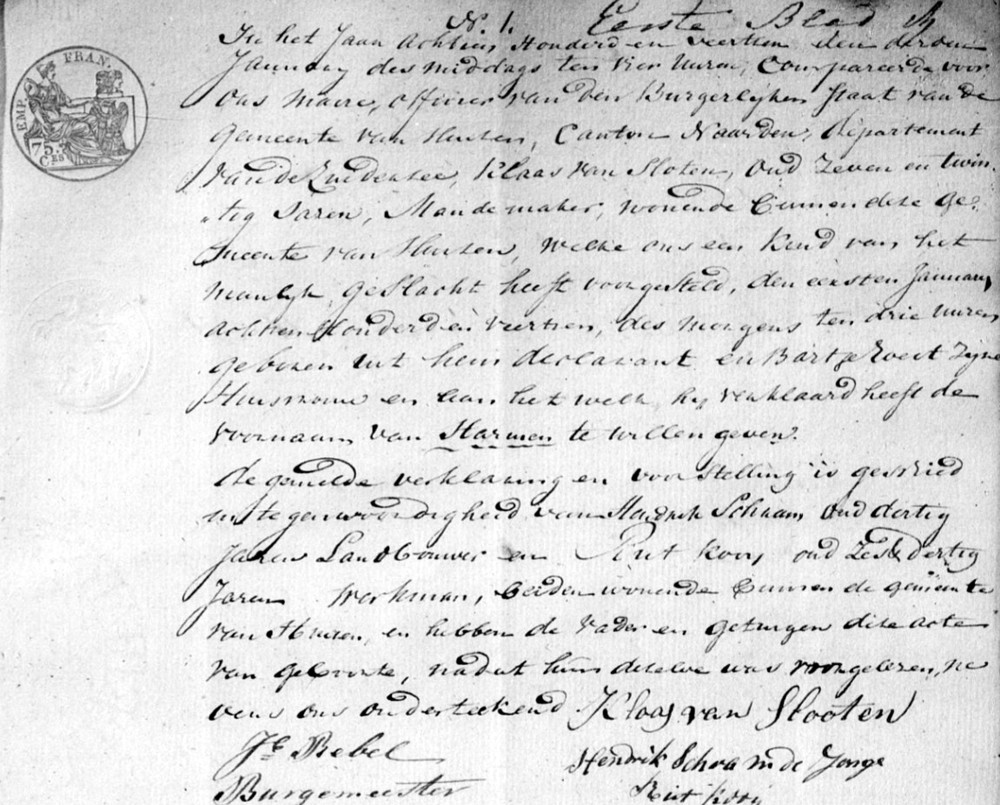 N. 1. Eerste Blad
In het Jaar Achtien Honderd en veertien den derden
January des middags ten vier uuren, Compareerde voor
ons Maire, officier van den Burgerlyken Staat van de
Gemeente van Huisen, Canton Naarden, Departement
van de Zuiderzee, Klaas van Sloten, oud Zeven en twin-
tig Jaren, Mandemaker, wonende binnen dese Ge-
meente van Huisen, welke ons een Kind van het
manlyk geslacht heeft voorgesteld, den eersten January
achtien Honderd en veertien, des morgens ten drie uuren
geboren uit hem declarant en Bartje Zyne
Huisvrouw en aan het welk hy verklaard heeft de
voornaam van Harmen te willen geven.
de gemelde verklaring en voorstelling is geschied
in tegenwoordigheid van Hendrik Schaam oud dertig
Jaren Landbouwer en Riut Kooy oud Zes & dertig
Jaren Werkman, beiden wonende binnen de gemeente
van Huisen, en hebben de vader en getuigen dese acte
van geboorte, nadat hun deselve was voorgelezen, ne
vens ons ondertekend Klaas van Slooten
Jc Rebel
Hendrik Schaam de Jonge
Burgemeester
Riut Kooy
EMP. FRAN.
75 CES